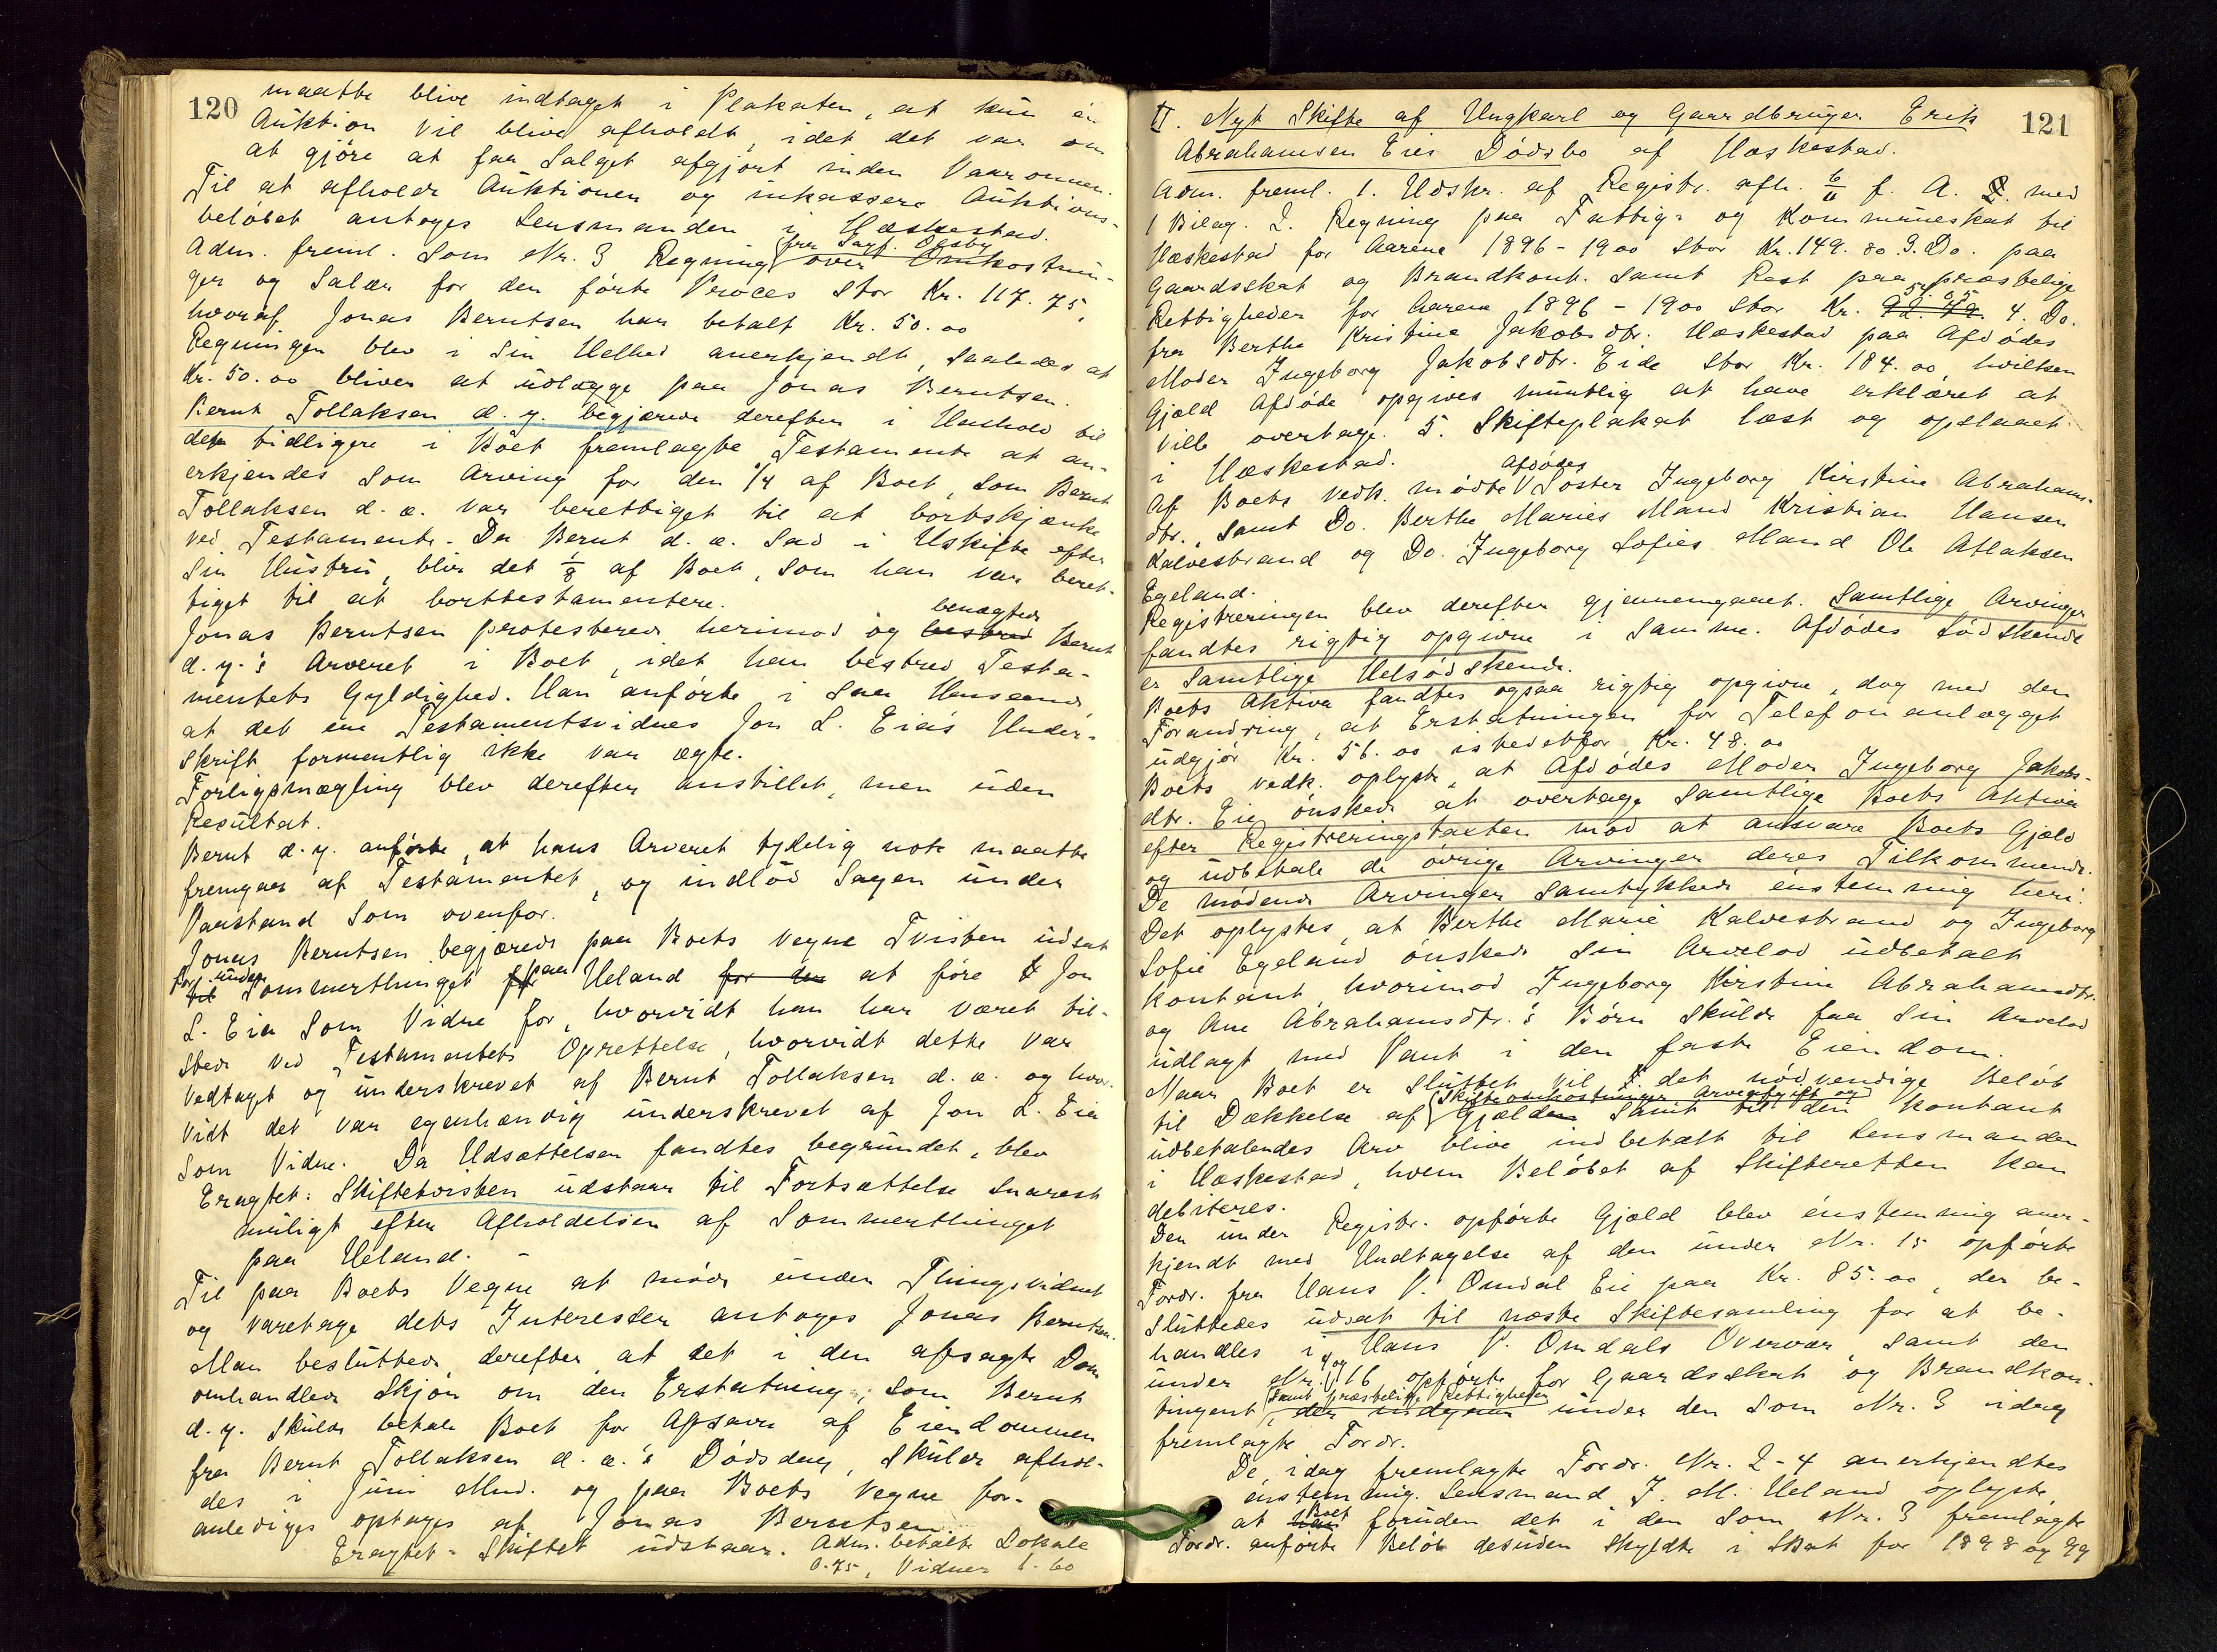 120
maatte blive indtaget i Plakaten, at kun én
Auktion vil blive afholdt, idet det var om
at gjöre at faa Salget afgjort inden Vaaronnen.
Til at afholde Auktionen og inkassere Auktions-
belöbet antages Lensmanden i Hæskestad.
fra Sagf. Ousby
Adm. freml. som Nr. 3 Regning over Omkostnin-
ger og Salær for den förte Proces stor Kr. 117.75,
hvoraf Jonas Berntsen har betalt Kr. 50.00
Regningen blev i sin Helhed anerkjendt, saaledes at
Kr. 50.00 bliver at udlægge paa Jonas Berntsen.
Bernt Tollaksen d.y. begjærede derefter i Henhold til
det tidligere i Boet fremlagte Testamente at an-
erkjendes som Arving for den 1/4 af Boet, som Bernt
Tollaksen d.æ. var berettiget til at bortskjænke
ved Testamente. Da Bernt d.æ. sad i Uskifte efter
sin Hustru, blir det 1/8 af Boet, som han var beret-
tiget til at borttestamentere.
benægtede
Jonas Berntsen protesterede herimod og bestred Bernt
d.y.'s Arveret i Boet, idet han bestred Testa-
mentets Gyldighed. Han anförte i saa Henseende
at det ene Testamentsvidnes Jon L. Eia's Under-
skrift formentlig ikke var ægte.
Forligsmægling blev derefter anstillet, men uden
Resultat.
Bernt d.y. anförte, at hans Arveret tydelig nok maatte
fremgaa af Testamentet, og indlod Sagen under
Paastand som ovenfor.
Jonas Berntsen begjærede paa Boets Vegne Tvisten udsat
for under paa
til Sommerthinget for Heland for en at före Jon
L. Eia som Vidne for, hvorvidt han har været til-
stede ved Testamentets Oprettelse, hvorvidt dette var
vedtaget og underskrevet af Bernt Tollaksen d.æ. og hvor-
vidt det var egenhændig underskrevet af Jon L. Eia
som Vidne. Da Udsættelsen fandtes begrundet, blev
Eragtet: Skiftetvisten udstaar til Fortsættelse snarest
muligt efter Afholdelsen af Sommerthinget
paa Heland.
Til paa Boets Vegne at möde under Thingsvidnet
og varetage dets Interesser antages Jonas Berntsen.
Man besluttede derefter, at det i den afsagte Dom
omhandlede Skjön om den Erstatning, som Bernt
d.y. skulde betale Boet for Afsavn af Eiendommen
fra Bernt Tollaksen d.æ.'s Dödsdag, skulde afhol-
des i Juni Mnd. og paa Boets Vegne for-
anlediges optages af Jonas Berntsen.
Eragtet: Skiftet udstaar. Adm. betalte Lokale
0.75, Vidner 1.60
121
II. Nyt Skifte af Ungkarl og Gaardbruger Erik
Abrahamsen Eies Dödsbo af Hæskestad.
Adm. freml. 1. Udskr. af Registr. afh. 6/11 f. A. med
1 Bilag. 2. Regning paa Fattig- og Kommuneskat til
Hæskestad for Aarene 1896-1900 stor Kr. 149.80 3. Do. paa
Gaardsskat og Brandkont. samt Rest paa præstelige
Rettigheder for Aarene 1896-1900 stor Kr. 4. Do.
fra Berthe Kristine Jakobsdtr. Hæskestad paa Afdödes
Moder Ingeborg Jakobsdtr. Eide stor Kr. 184.00, hvilken
Gjæld Afdöde opgives mundtlig at have erklæret at
ville overtage. 5. Skifteplakat læst og opslaaet
i Hæskestad.
Afdödes
Af Boets vedk. mödte Söster Ingeborg Kirstine Abrahams-
dtr., samt Do. Berthe Maries Mand Kristian Hansen
Kalvestrand og Do. Ingeborg Sofies Mand Ole Atlaksen
Egeland.
Registreringen blev derefter gjennemgaaet. Samtlige Arvinger
fandtes rigtig opgivne i samme. Afdödes Södskende
er samtlige Helsödskende.
Boets Aktiva fandtes ogsaa rigtig opgivne, dog med den
Forandring, at Erstatningen for Telefonanlægget
udgjör Kr. 56.00 istedetfor Kr. 48.00
Boets vedk. oplyste, at Afdödes Moder Ingeborg Jakobs-
dtr. Eie önskede at overtage samtlige Boets Aktiva
efter Registreringstaxten mod at ansvare Boets Gjæld
og udbetale de övrige Arvinger deres Tilkommende.
De mödende Arvinger samtykkede enstemmig heri.
Det oplystes, at Berthe Marie Kalvestrand og Ingeborg
Sofie Egeland önskede sin Arvelod udbetalt
kontant, hvorimod Ingeborg Kirstine Abrahamsdtr.
og Ane Abrahamsdtr.'s Börn skulde faa sin Arvelod
udlagt med Pant i den faste Eiendom.
Naar Boet er sluttet vil det nödvendige Belöb
Skifteomkostninger Arveafgift og
til Dækkelse af Gjælden samt til den kontant
udbetalendes Arv blive indbetalt til Lensmanden
i Hæskestad, hvem Belöbet af Skifteretten kan
debiteres.
Den under Registr. opförte Gjæld blev enstemmig aner-
kjendt med Undtagelse af den under Nr. 15 opförte
Fordr. fra Hans P. Omdal Eie paa Kr. 85.00, der be-
sluttedes udsat til næste Skiftesamling for at be-
handles i Hans P. Omdals Overvær, samt den
4 og
under Nr. 16 opförte for Gaardsskat og Brandkon-
samt præstelige Rettigheder
tingent, der indgaar under den som Nr. 3 idag
fremlagte Fordr.
De idag fremlagte Fordr. Nr. 2-4 anerkjendtes
enstemmig. Lensmand J. M. Ueland oplyste,
Boet
at han foruden det i den som Nr. 3 fremlagte
Fordr. anförte Belöb desuden skyldte i Skat for 1898 og 99